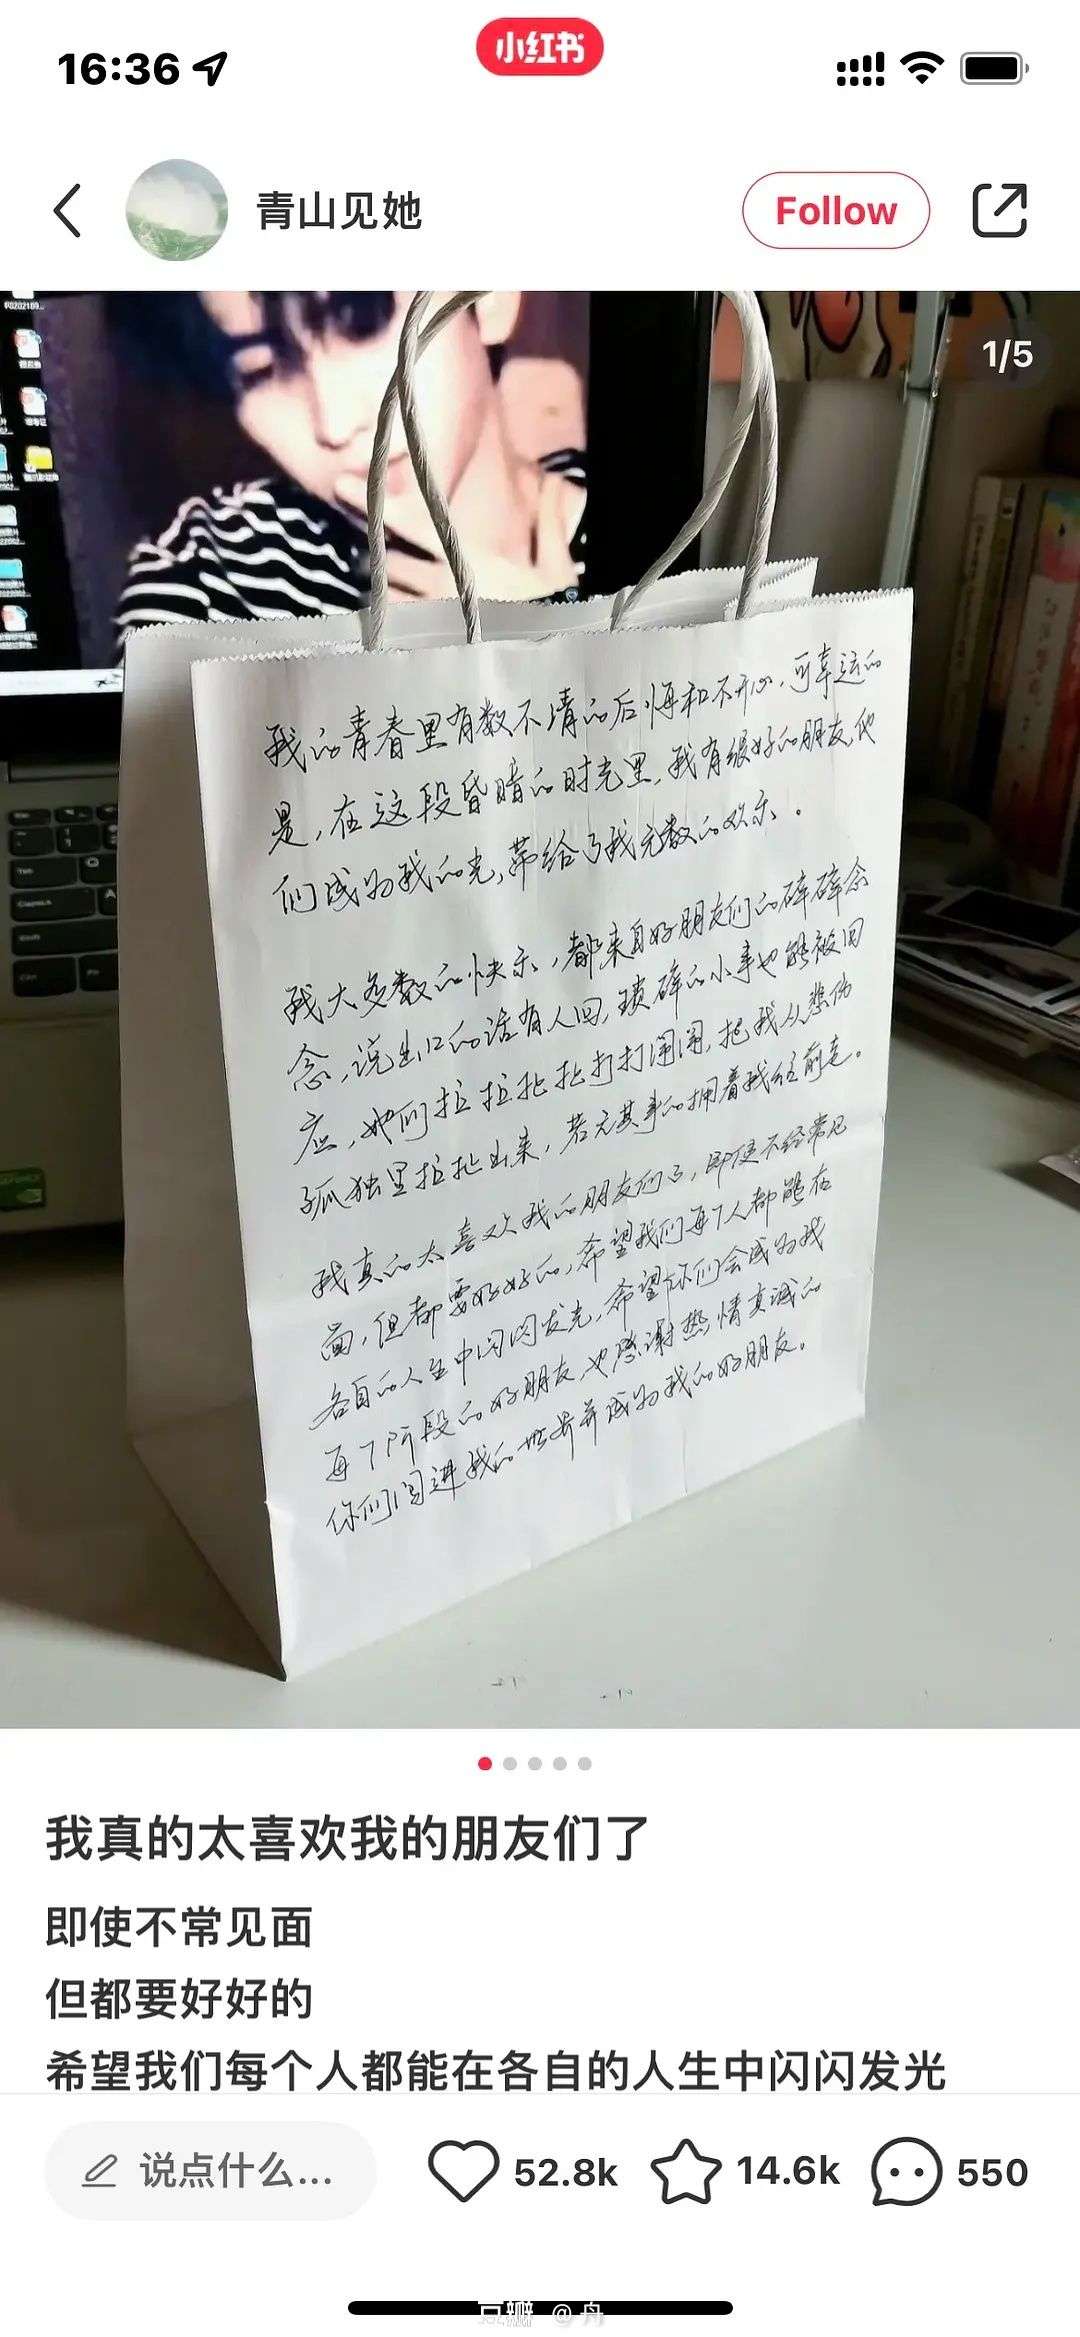 16:36
小红书
青山见她
Follow
1/5
我的青春里有数不清的后悔和不开心,可幸运的
是,在这段昏暗的时光里,我有很好的朋友,他
们成为我的光,带给了我无数的欢乐。
我大多数的快乐,都来自好朋友们的碎碎念
念,说出口的话有人回,琐碎的小事也能被回
应,她们拉拉扯扯打打闹闹,把我从悲伤
孤独里拉扯出来,若无其事的拥着我往前走。
我真的太喜欢我的朋友们了,即使不经常见
面,但都要好好的,希望我们每个人都能在
各自的人生中闪闪发光,希望你们会成为我
每个阶段的好朋友,也感谢热情真诚的
你们闯进我的世界并成为我的好朋友。
我真的太喜欢我的朋友们了
即使不常见面
但都要好好的
希望我们每个人都能在各自的人生中闪闪发光
说点什么...
52.8k
14.6k
550
豆瓣 @舟